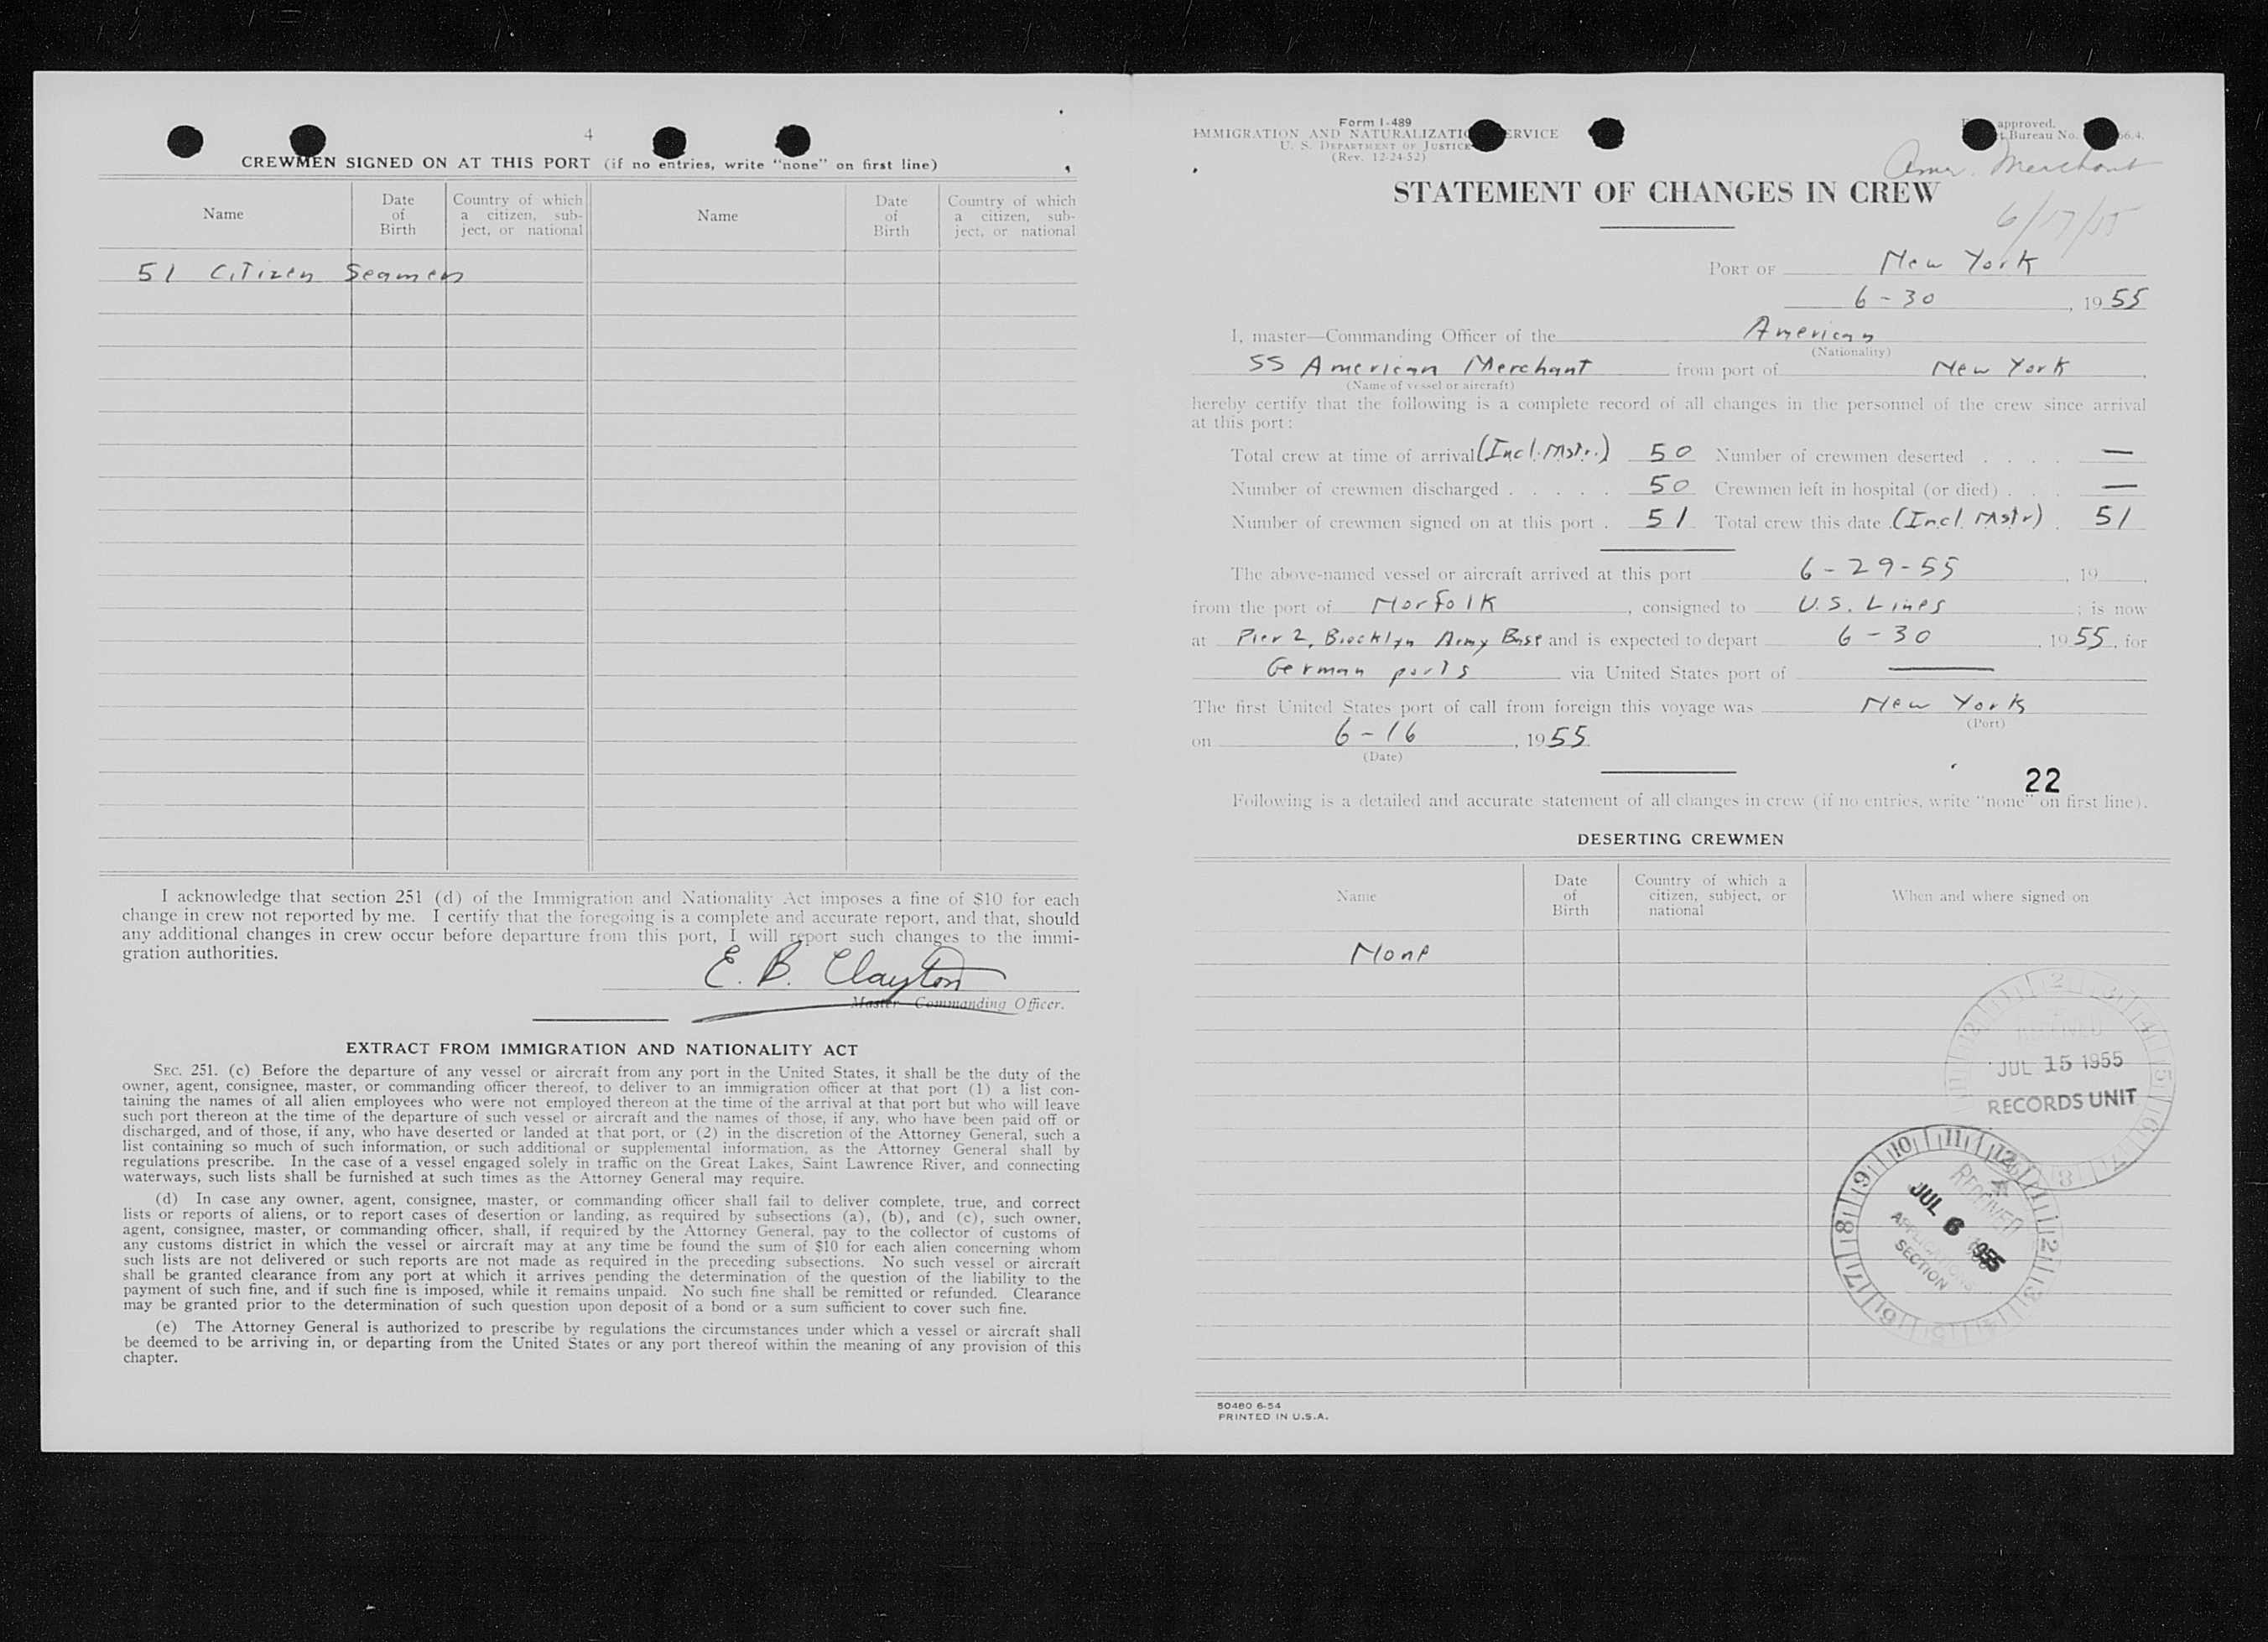 4
CREWMEN SIGNED ON AT THIS PORT (if no entries, write "none" on first line)
Name
Date of Birth
Country of which a citizen, sub-ject, or national
Name
Date of Birth
Country of which a citizen, sub-ject, or national
51 Citizen Seamen
I acknowledge that section 251 (d) of the Immigration and Nationality Act imposes a fine of $10 for each
change in crew not reported by me. I certify that the foregoing is a complete and accurate report, and that, should
any additional changes in crew occur before departure from this port, I will report such changes to the immi-
gration authorities.
E. B. Clayton
Master Commanding Officer.
EXTRACT FROM IMMIGRATION AND NATIONALITY ACT
SEC. 251. (c) Before the departure of any vessel or aircraft from any port in the United States, it shall be the duty of the
owner, agent, consignee, master, or commanding officer thereof, to deliver to an immigration officer at that port (1) a list con-
taining the names of all alien employees who were not employed thereon at the time of the arrival at that port but who will leave
such port thereon at the time of the departure of such vessel or aircraft and the names of those, if any, who have been paid off or
discharged, and of those, if any, who have deserted or landed at that port, or (2) in the discretion of the Attorney General, such a
list containing so much of such information, or such additional or supplemental information, as the Attorney General shall by
regulations prescribe. In the case of a vessel engaged solely in traffic on the Great Lakes, Saint Lawrence River, and connecting
waterways, such lists shall be furnished at such times as the Attorney General may require.
(d) In case any owner, agent, consignee, master, or commanding officer shall fail to deliver complete, true, and correct
lists or reports of aliens, or to report cases of desertion or landing, as required by subsections (a), (b), and (c), such owner,
agent, consignee, master, or commanding officer, shall, if required by the Attorney General, pay to the collector of customs of
any customs district in which the vessel or aircraft may at any time be found the sum of $10 for each alien concerning whom
such lists are not delivered or such reports are not made as required in the preceding subsections. No such vessel or aircraft
shall be granted clearance from any port at which it arrives pending the determination of the question of the liability to the
payment of such fine, and if such fine is imposed, while it remains unpaid. No such fine shall be remitted or refunded. Clearance
may be granted prior to the determination of such question upon deposit of a bond or a sum sufficient to cover such fine.
(e) The Attorney General is authorized to prescribe by regulations the circumstances under which a vessel or aircraft shall
be deemed to be arriving in, or departing from the United States or any port thereof within the meaning of any provision of this
chapter.
Form I-489
IMMIGRATION AND NATURALIZATION SERVICE
U. S. DEPARTMENT OF JUSTICE
(Rev. 12-24-52)
approved.
Bureau No.
Amer. Merchant
STATEMENT OF CHANGES IN CREW
6/17/55
PORT OF New York
6-30, 1955
I, master—Commanding Officer of the American
(Nationality)
SS American Merchant from port of New York
(Name of vessel or aircraft)
hereby certify that the following is a complete record of all changes in the personnel of the crew since arrival
at this port:
Total crew at time of arrival (Incl. Mstr.) 50 Number of crewmen deserted . . . . —
Number of crewmen discharged . . . . . 50 Crewmen left in hospital (or died) . . . —
Number of crewmen signed on at this port . 51 Total crew this date (Incl. Mstr) . 51
The above-named vessel or aircraft arrived at this port 6-29-55, 19 ,
from the port of Norfolk, consigned to U.S. Lines; is now
at Pier 2, Brooklyn Army Base and is expected to depart 6-30, 1955, for
German ports via United States port of —
The first United States port of call from foreign this voyage was New York
(Port)
on 6-16, 1955
(Date)
22
Following is a detailed and accurate statement of all changes in crew (if no entries, write "none" on first line).
DESERTING CREWMEN
Name
Date of Birth
Country of which a citizen, subject, or national
When and where signed on
None
JUL 15 1955
RECORDS UNIT
RECEIVED
JUL 6 1955
APPLICATIONS
SECTION
50480 6-54
PRINTED IN U.S.A.